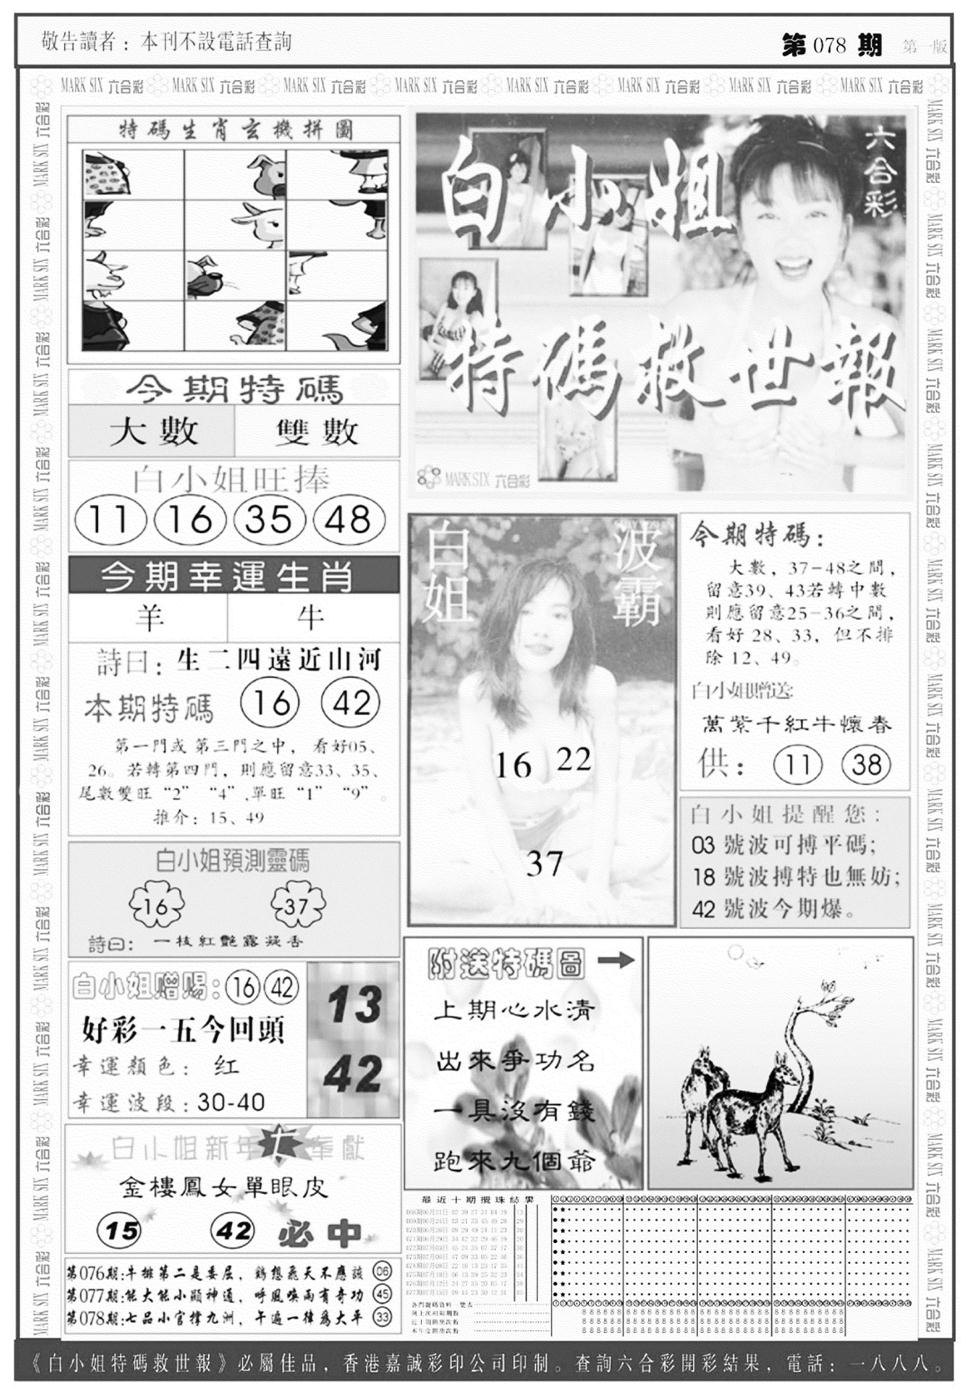 敬告讀者：本刊不設電話查詢
第078期 第一版
MARK SIX 六合彩 MARK SIX 六合彩 MARK SIX 六合彩 MARK SIX 六合彩 MARK SIX 六合彩 MARK SIX 六合彩 MARK SIX 六合彩 MARK SIX 六合彩
特碼生肖玄機拼圖
今期特碼
大數 雙數
白小姐旺捧
11 16 35 48
今期幸運生肖
羊 牛
詩曰：生二四遠近山河
本期特碼 16 42
第一門或第三門之中，看好05、
26。若轉第四門，則應留意33、35、
尾數雙旺“2”“4”,單旺“1”“9”。
推介：15、49
白小姐預測靈碼
16 37
詩曰：一枝紅艷露凝香
白小姐贈賜：16 42
好彩一五今回頭
幸運顏色：红
幸運波段：30-40
13
42
白小姐新年奉獻
金樓鳳女單眼皮
15 42 必中
第076期:牛排第二是委屈，鷄想飛天不應該 06
第077期:能大能小顯神通，呼風喚雨有奇功 45
第078期:七品小官撐九洲，午遍一律爲太平 33
白小姐
六合彩
特碼救世報
MARK SIX 六合彩
白姐 波霸
16 22
37
今期特碼：
大數，37-48之間，
留意39、43若轉中數
則應留意25-36之間，
看好28、33，但不排
除12、49。
白小姐贈送:
萬紫千紅牛懷春
供：11 38
白小姐提醒您：
03 號波可搏平碼；
18 號波搏特也無妨；
42 號波今期爆。
附送特碼圖
上期心水清
出來爭功名
一具沒有錢
跑來九個爺
最近十期攪珠結果
《白小姐特碼救世報》必屬佳品，香港嘉誠彩印公司印制。查詢六合彩開彩結果，電話：一八八八。